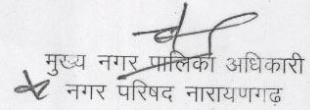 मुख्य नगर पालिका अधिकारी
नगर परिषद नारायणगढ़